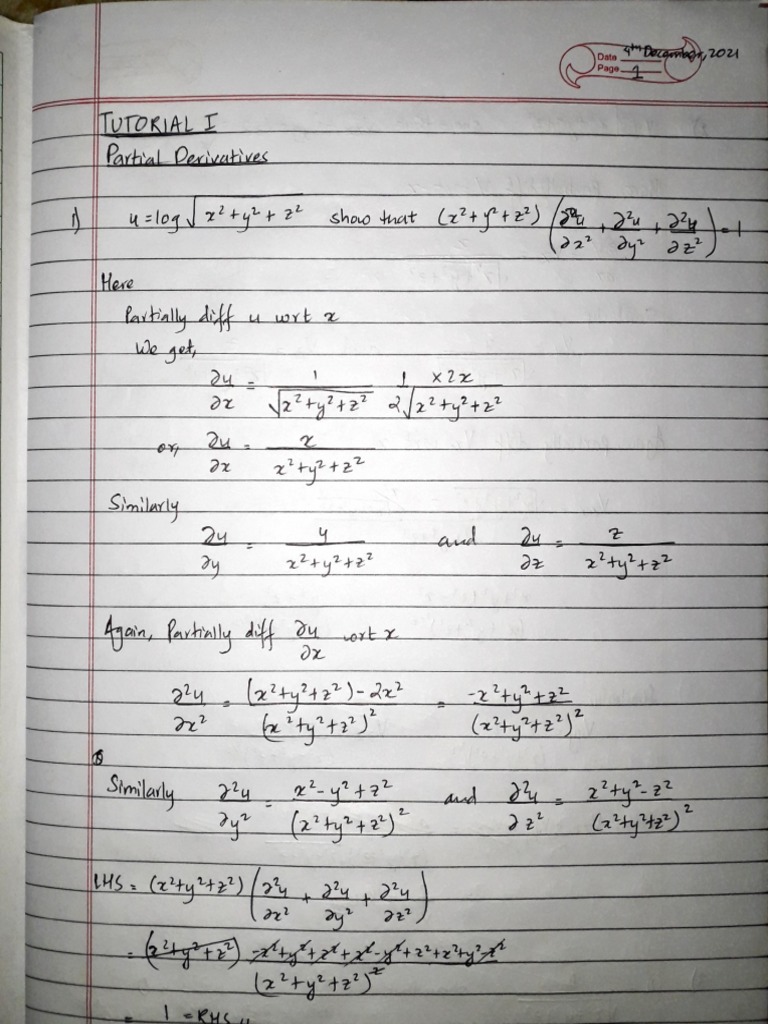 Date 4th December, 2021
Page 1
TUTORIAL I
Partial Derivatives
1) u = log √(x² + y² + z²) show that (x² + y² + z²) (∂²u/∂x² + ∂²u/∂y² + ∂²u/∂z²) = 1
Here
Partially diff u wrt x
We get,
∂u/∂x = 1/√(x² + y² + z²) 1/2√(x² + y² + z²) × 2x
or, ∂u/∂x = x/(x² + y² + z²)
Similarly
∂u/∂y = y/(x² + y² + z²) and ∂u/∂z = z/(x² + y² + z²)
Again, Partially diff ∂u/∂x wrt x
∂²u/∂x² = ((x² + y² + z²) - 2x²)/(x² + y² + z²)² = (-x² + y² + z²)/(x² + y² + z²)²
Similarly ∂²u/∂y² = (x² - y² + z²)/(x² + y² + z²)² and ∂²u/∂z² = (x² + y² - z²)/(x² + y² + z²)²
LHS = (x² + y² + z²) (∂²u/∂x² + ∂²u/∂y² + ∂²u/∂z²)
= (x² + y² + z²) (-x² + y² + z² + x² - y² + z² + x² + y² - z²)/(x² + y² + z²)²
= 1 = RHS //